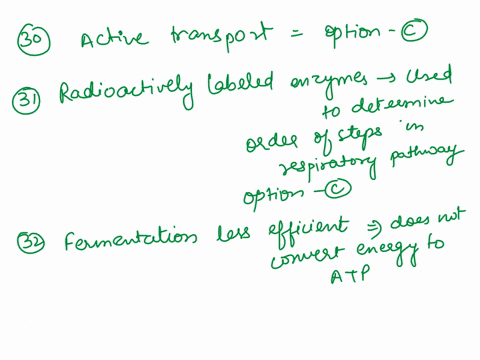 30 Active transport = option - C
31 Radioactively labeled enzymes → used
to determine
order of steps in
respiratory pathway
option - C
32 Fermentation less efficient ⇒ does not
convert energy to
ATP